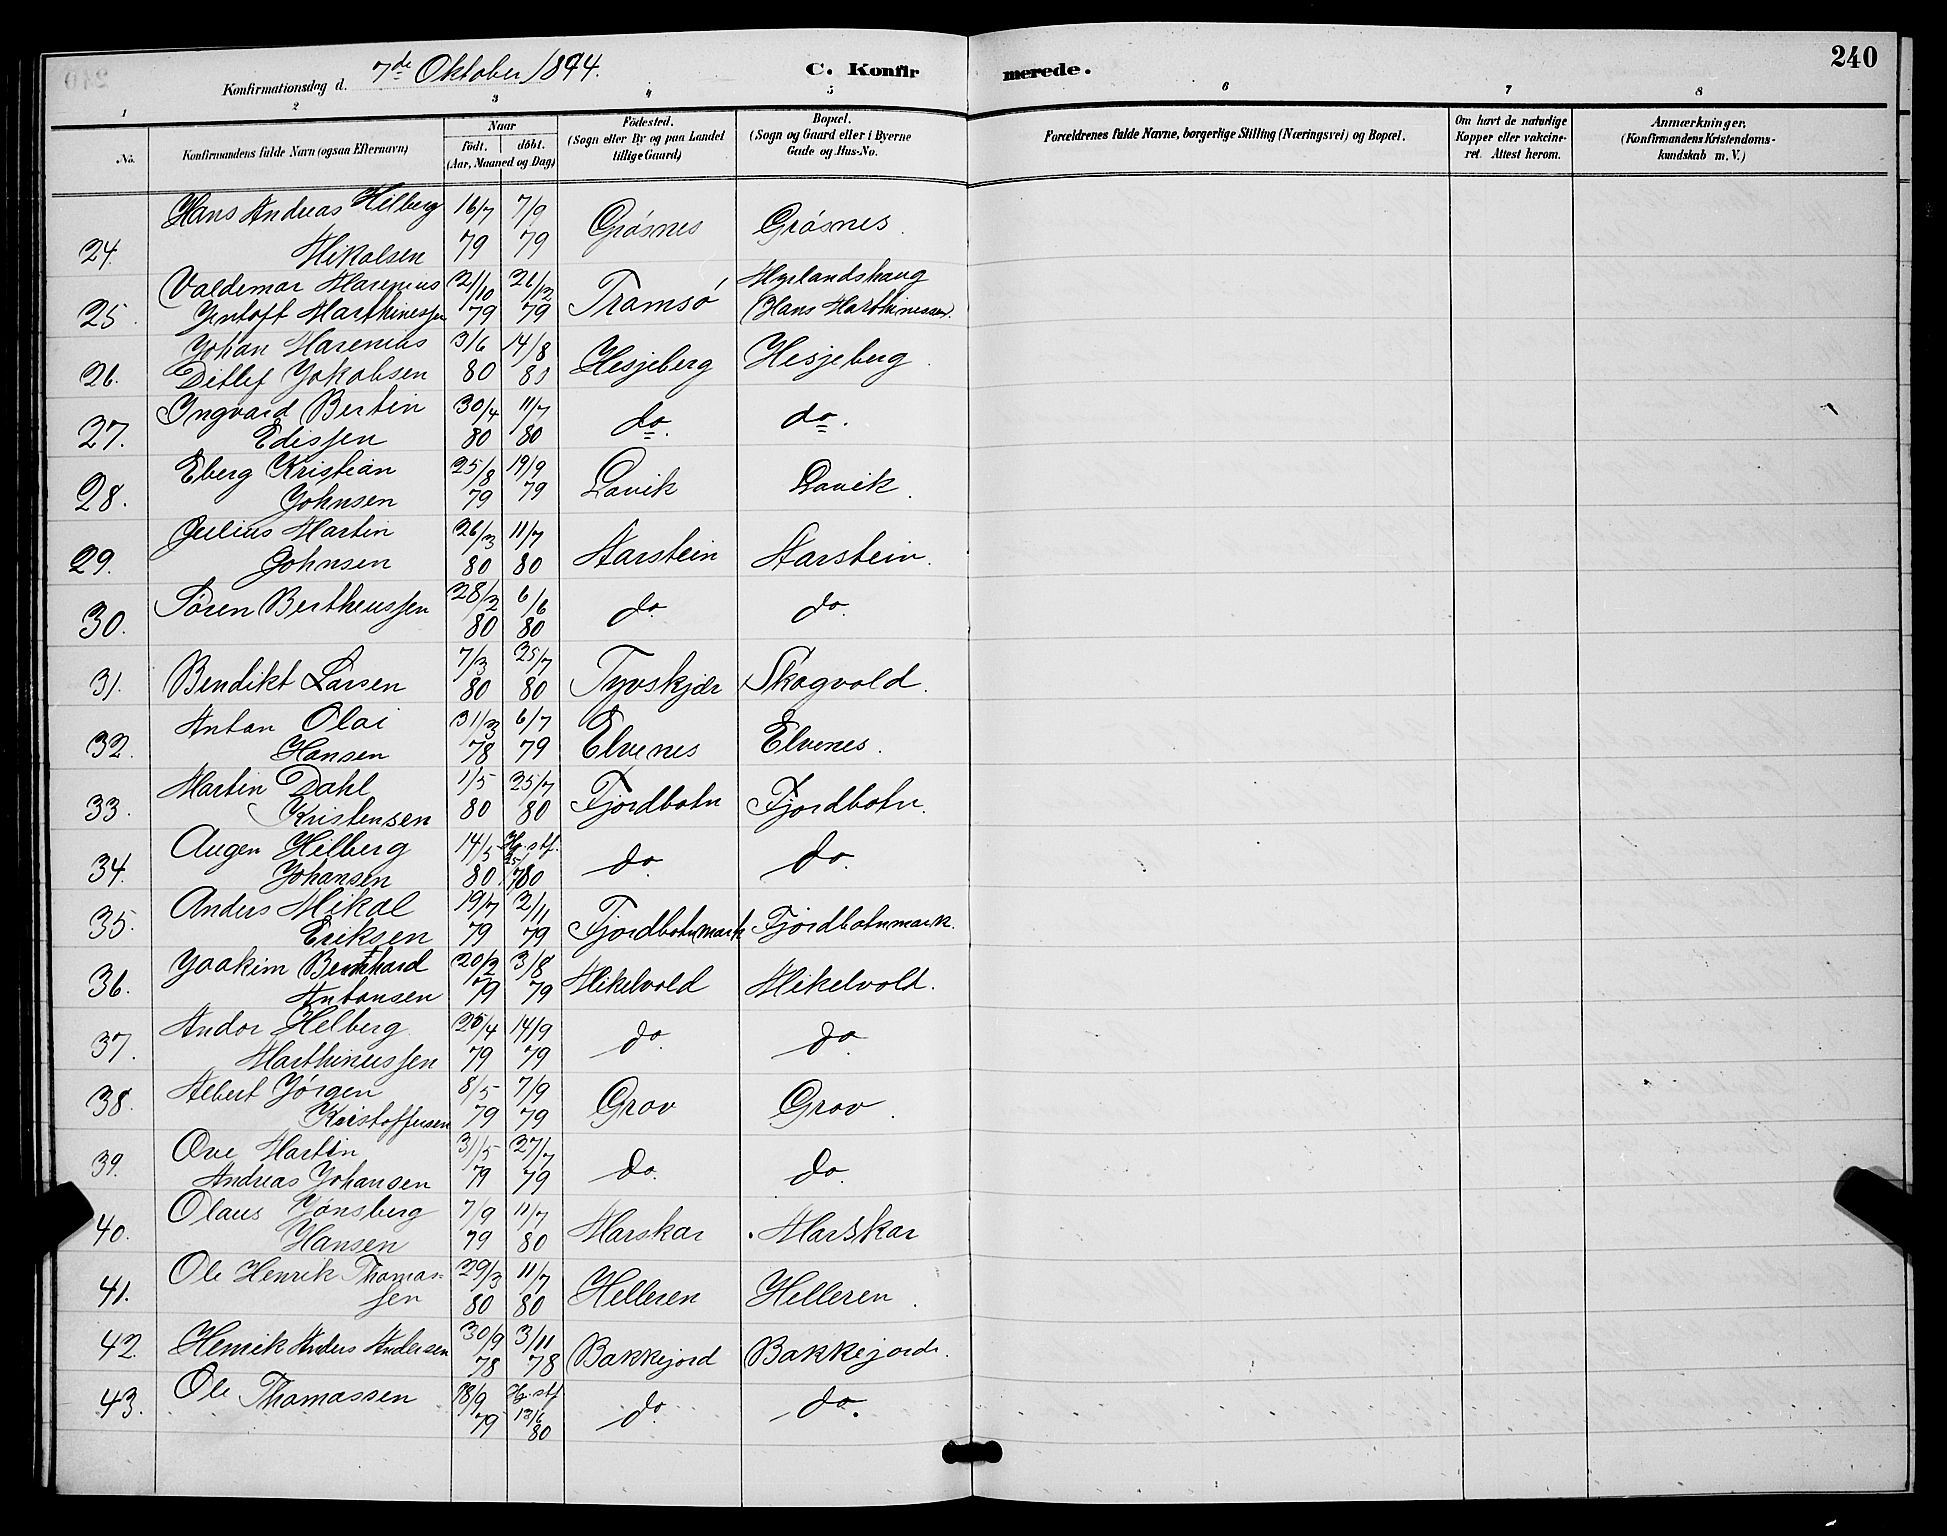 240
Konfirmationsdag d. 7de Oktober 1894. C. Konfirmerede.
1 2 3 4 5 6 7 8
No. Konfirmandens fulde Navn (ogsaa Efternavn) Naar født. døbt. (Aar, Maaned og Dag) Fødested. (Sogn eller By og paa Landet tillige Gaard) Bopæl. (Sogn og Gaard eller i Byerne Gade og Hus-No. Forældrenes fulde Navne, borgerlige Stilling (Næringsvei) og Bopæl. Om havt de naturlige Kopper eller vakcineret. Attest herom. Anmærkninger, (Konfirmandens Kristendomskundskab m. V.)
Hans Andreas Hilberg 16/7 7/9
24. Mikalsen 79 79 Grøsnes Grøsnes.
Valdemar Marenius 21/10 26/12 Myrlandshaug
25. Jentoft Marthinessen 79 79 Tromsø (Hans Marthinessen).
Johan Marenius 3/6 14/8
26. Ditlef Jakobsen 80 80 Hesjeberg Hesjeberg.
Ingvard Bertin 30/4 11/7
27. Edissen 80 80 do. do.
Eberg Kristian 25/8 19/9
28. Johnsen 79 79 Lavik Lavik.
Julius Martin 26/3 11/7
29. Johnsen 80 80 Aarstein Aarstein.
Søren Bertheussen 28/2 6/6
30. 80 80 do. do.
7/3 25/7
31. Bendikt Larsen 80 80 Tyvskjær Skogvold.
Anton Olai 31/3 6/7
32. Hansen 78 79 Elvenes Elvenes.
Martin Dahl 1/5 25/7
33. Kristensen 80 80 Fjordbotn Fjordbotn.
Augen Hilberg 14/5 Hj. stf.
34. Johansen 80 25/7 80 do. do.
Anders Mikal 19/7 2/11
35. Eriksen 79 79 Fjordbotnmark Fjordbotnmark.
Joakim Bernthard 20/2 3/8
36. Antonsen 79 79 Mikelvold Mikelvold.
Andor Helberg 25/4 14/9
37. Marthinussen 79 79 do. do.
Albert Jørgen 8/5 7/9
38. Kristoffersen 79 79 Grov Grov.
Ove Martin 31/5 27/7
39. Andreas Johansen 79 79 do. do.
Olaus Tønsberg 7/9 11/7
40. Hansen 79 80 Marskar Marskar
Ole Henrik Thomas- 29/3 11/7
41. sen 80 80 Helleren Helleren.
30/9 3/11
42. Henrik Anders Andersen 78 78 Bakkejord Bakkejord.
Ole Thomassen 18/9 Hj. stf.
43. 79 13/6 80 do. do.